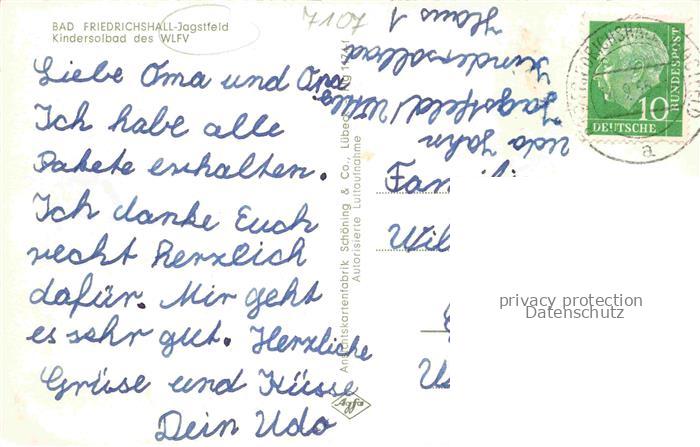 BAD FRIEDRICHSHALL-Jagstfeld
Kindersolbad des WLFV
7107
Liebe Oma und Opa
Ich habe alle
Pakete erhalten.
Ich danke Euch
recht herzlich
dafür. Mir geht
es sehr gut. Herzliche
Grüsse und Küsse
Dein Udo
Ansichtskartenfabrik Schöning & Co., Lübeck
Autorisierte Luftaufnahme
Agfa
Udo Jahn
Jagstfeld/Wttbg.
Kindersolbad
Haus 1
10
DEUTSCHE
BUNDESPOST
a
Fam
Wil
privacy protection
Datenschutz